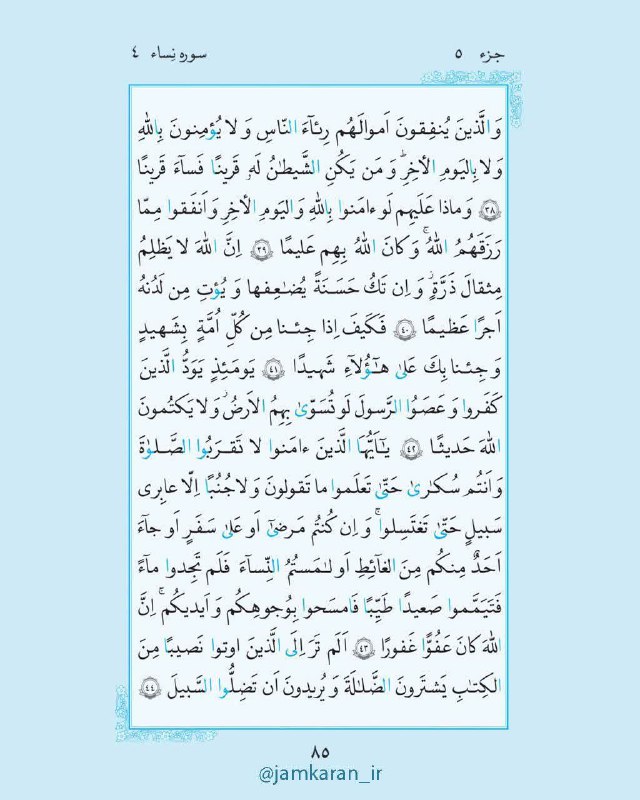 جزء ۵
سوره نساء ۴
وَالَّذینَ یُنفِقونَ اَموالَهُم رِئآءَ النّاسِ وَ لا یُؤمِنونَ بِاللهِ
وَلا بِالیَومِ الاٰخِرِۗ وَ مَن یَکُنِ الشَّیطٰنُ لَهٗ قَرینًا فَسآءَ قَرینًا
﴿۳۸﴾ وَماذا عَلَیهِم لَو ءامَنوا بِاللهِ وَالیَومِ الاٰخِرِ وَاَنفَقوا مِمّا
رَزَقَهُمُ اللهُۚ وَ کانَ اللهُ بِهِم عَلیمًا ﴿۳۹﴾ اِنَّ اللهَ لا یَظلِمُ
مِثقالَ ذَرَّةٍۖ وَ اِن تَکُ حَسَنَةً یُضٰعِفها وَ یُؤتِ مِن لَدُنهُ
اَجرًا عَظیمًا ﴿۴۰﴾ فَکَیفَ اِذا جِئنا مِن کُلِّ اُمَّةٍ بِشَهیدٍ
وَ جِئنا بِکَ عَلیٰ هٰؤُلآءِ شَهیدًا ﴿۴۱﴾ یَومَئِذٍ یَوَدُّ الَّذینَ
کَفَروا وَ عَصَوُا الرَّسولَ لَو تُسَوّیٰ بِهِمُ الاَرضُ وَ لا یَکتُمونَ
اللهَ حَدیثًا ﴿۴۲﴾ یٰاَیُّهَا الَّذینَ ءامَنوا لا تَقرَبُوا الصَّلوٰةَ
وَ اَنتُم سُکٰریٰ حَتّیٰ تَعلَموا ما تَقولونَ وَ لا جُنُبًا اِلّا عابِری
سَبیلٍ حَتّیٰ تَغتَسِلواۚ وَ اِن کُنتُم مَرضیٰٓ اَو عَلیٰ سَفَرٍ اَو جآءَ
اَحَدٌ مِنکُم مِنَ الغآئِطِ اَو لٰمَستُمُ النِّسآءَ فَلَم تَجِدوا مآءً
فَتَیَمَّموا صَعیدًا طَیِّبًا فَامسَحوا بِوُجوهِکُم وَ اَیدیکُمۗ اِنَّ
اللهَ کانَ عَفُوًّا غَفورًا ﴿۴۳﴾ اَلَم تَرَ اِلَی الَّذینَ اوتوا نَصیبًا مِنَ
الکِتٰبِ یَشتَرونَ الضَّلٰلَةَ وَ یُریدونَ اَن تَضِلُّوا السَّبیلَ ﴿۴۴﴾
۸۵
@jamkaran_ir